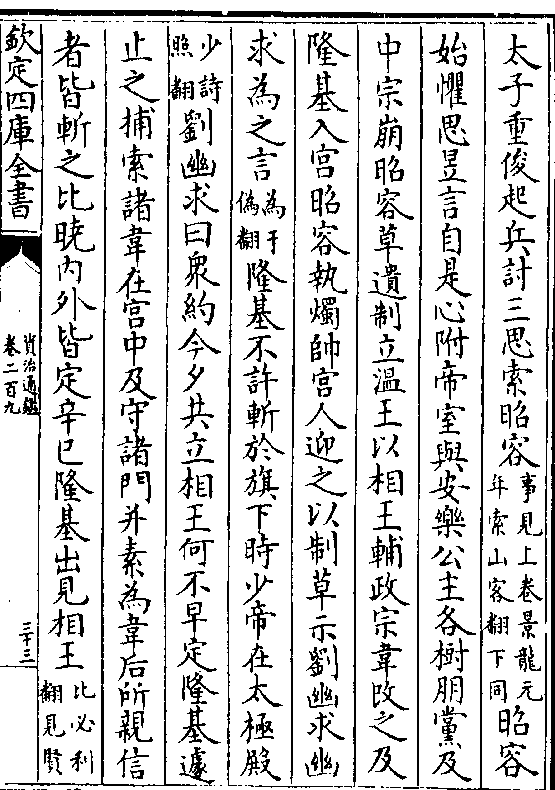 太子重俊起兵討三思索昭容事見上卷景龍元年索山客翻下同昭容
始懼思昱言自是心附帝室與安樂公主各樹朋黨及
中宗崩昭容草遺制立温王以相王輔政宗韋改之及
隆基入宫昭容執燭帥宫人迎之以制草示劉幽求幽
求為之言為于偽翻隆基不許斬於旗下時少帝在太極殿
少詩照翻劉幽求曰衆約今夕共立相王何不早定隆基遽
止之捕索諸韋在宫中及守諸門并素為韋后所親信
者皆斬之比曉内外皆定辛巳隆基出見相王比必利翻見賢
欽定四庫全書
資治通鑑
卷二百九
三十三